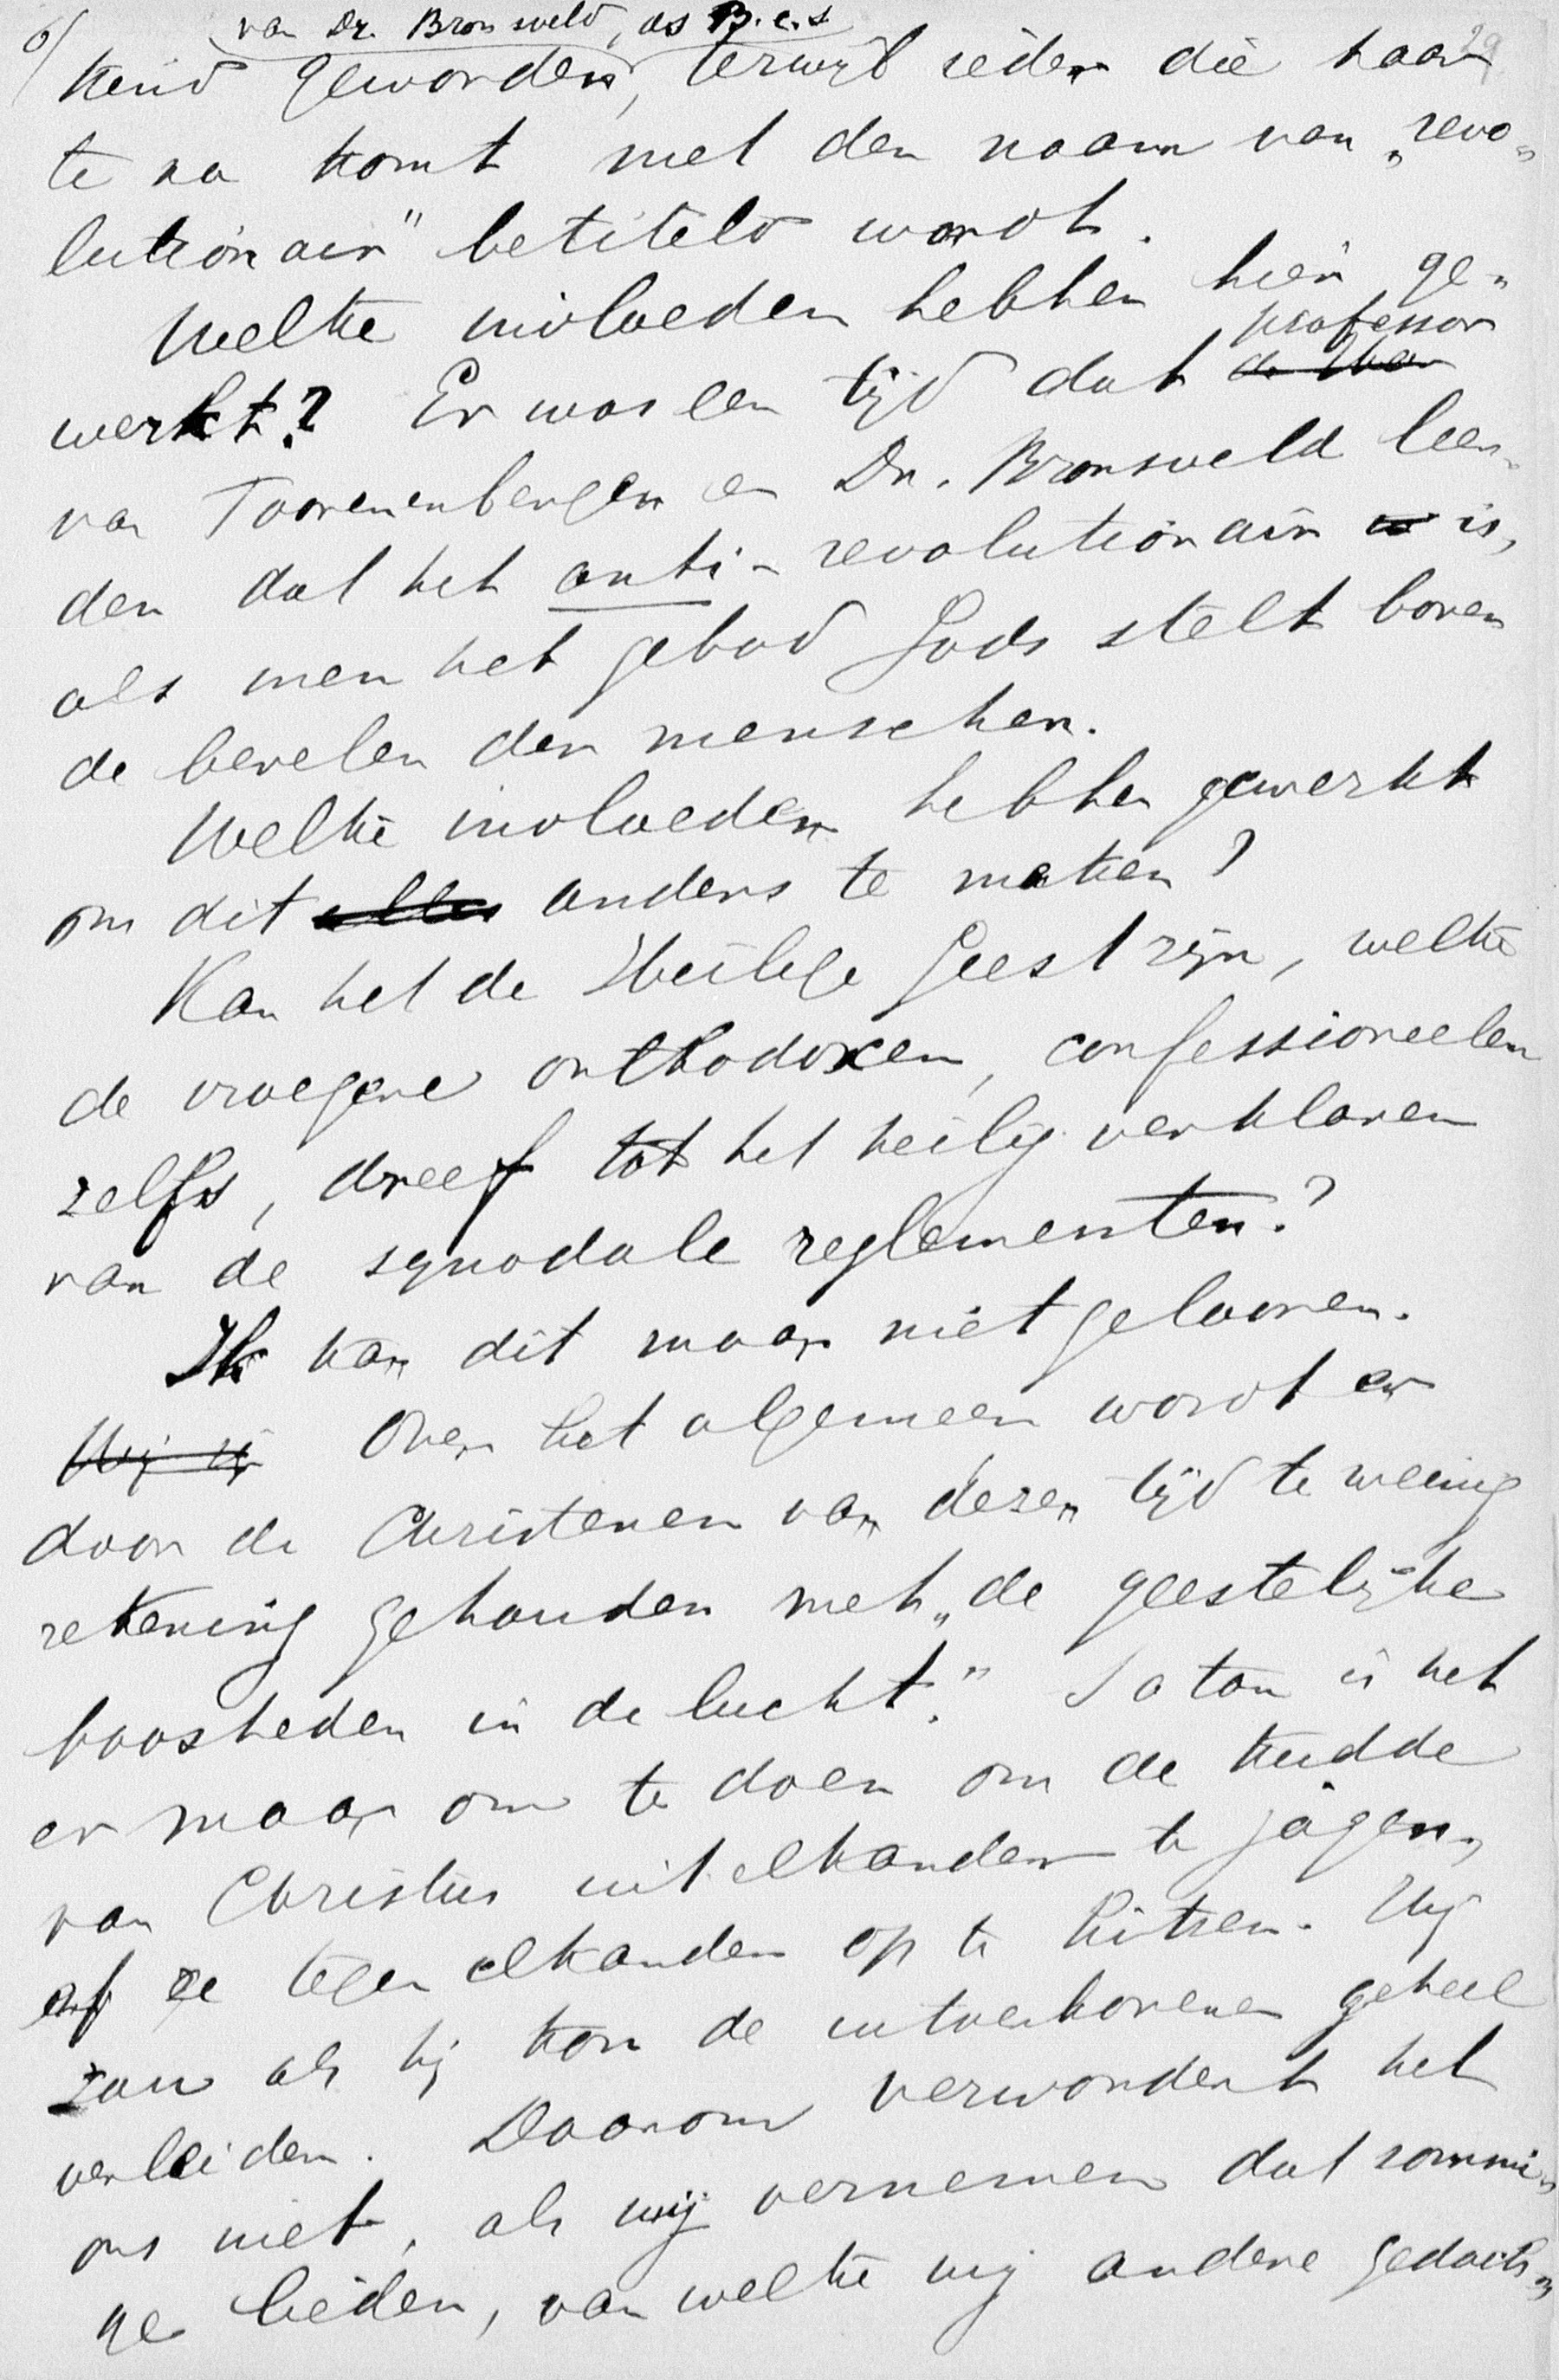 6/ van Dr. Bronsveld, as B.c.s 29
kend geworden, terwijl ieder die haar
te na komt met den naam van „revo„
lutionair" betiteld wordt.
Welke invloeden hebben hier ge„
professor
werkt? Er was een tijd dat
van Toorenenbergen en Dr. Bronsveld leer„
den dat het anti-revolutionair is,
als men het gebod Gods stelt boven
de bevelen der menschen.
Welke invloeden hebben gewerkt
om dit alles anders te maken?
Kan het de Heilige Geest zijn, welke
de vroegere orthodoxen, confessioneelen
zelfs, dreef tot het heilig verklaren
van de synodale reglementen?
Ik kan dit maar niet gelooven.
Over het algemeen wordt er
door de Christenen van dezen tijd te weinig
rekening gehouden met „de geestelijke
boosheden in de lucht." Satan is het
er maar om te doen om de kudde
van Christus uit elkander te jagen,
of ze tegen elkander op te hitsen. Hij
zou als hij kon de uitverkorenen geheel
verleiden. Daarom verwondert het
ons niet, als wij vernemen dat sommi„
ge lieden, van welke wij andere gedach„